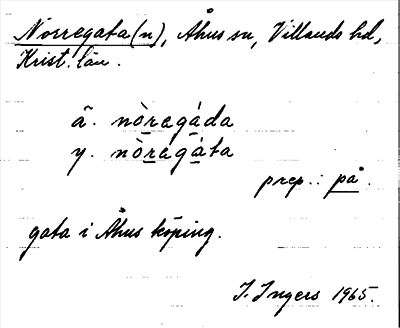 Norregata(n), Åhus sn, Villands hd,
Krist. län.
ä. nòregáda
y. nòregáta
prep.: på.
gata i Åhus köping.
I. Ingers 1965.